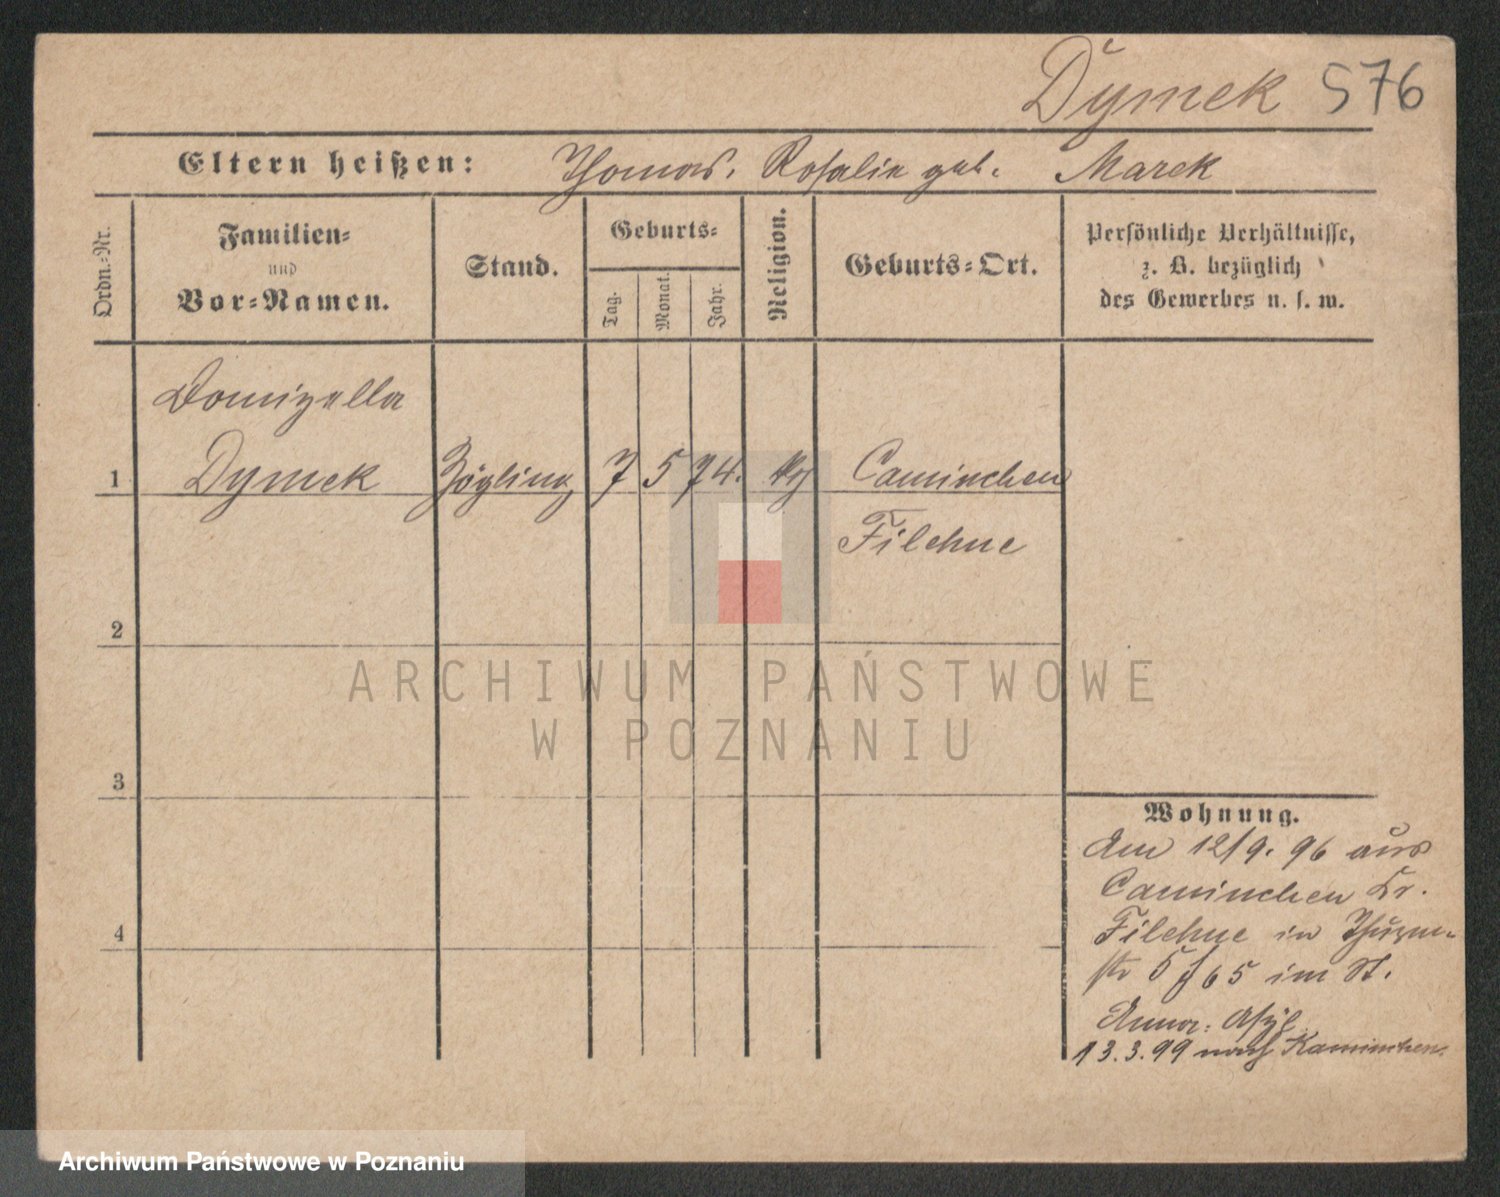 Dymek 576
Eltern heißen: Thomas. Rosalie geb. Marek
Ordn.-Nr.
Familien-
und
Vor-Namen.
Stand.
Geburts-
Tag.
Monat.
Jahr.
Religion.
Geburts-Ort.
Persönliche Verhältnisse,
z. B. bezüglich
des Gewerbes u. s. w.
Domizella
1 Dymek Zögling 7 5 74. Caminchen
Filehne
2
3
4
Wohnung.
Am 12/9. 96 aus
Caminchen Kr.
Filehne in Thurm-
str 5 f 65 im St.
Anna-Asyl
13.3.99 nach Kaminchen.
ARCHIWUM PAŃSTWOWE
W POZNANIU
Archiwum Państwowe w Poznaniu